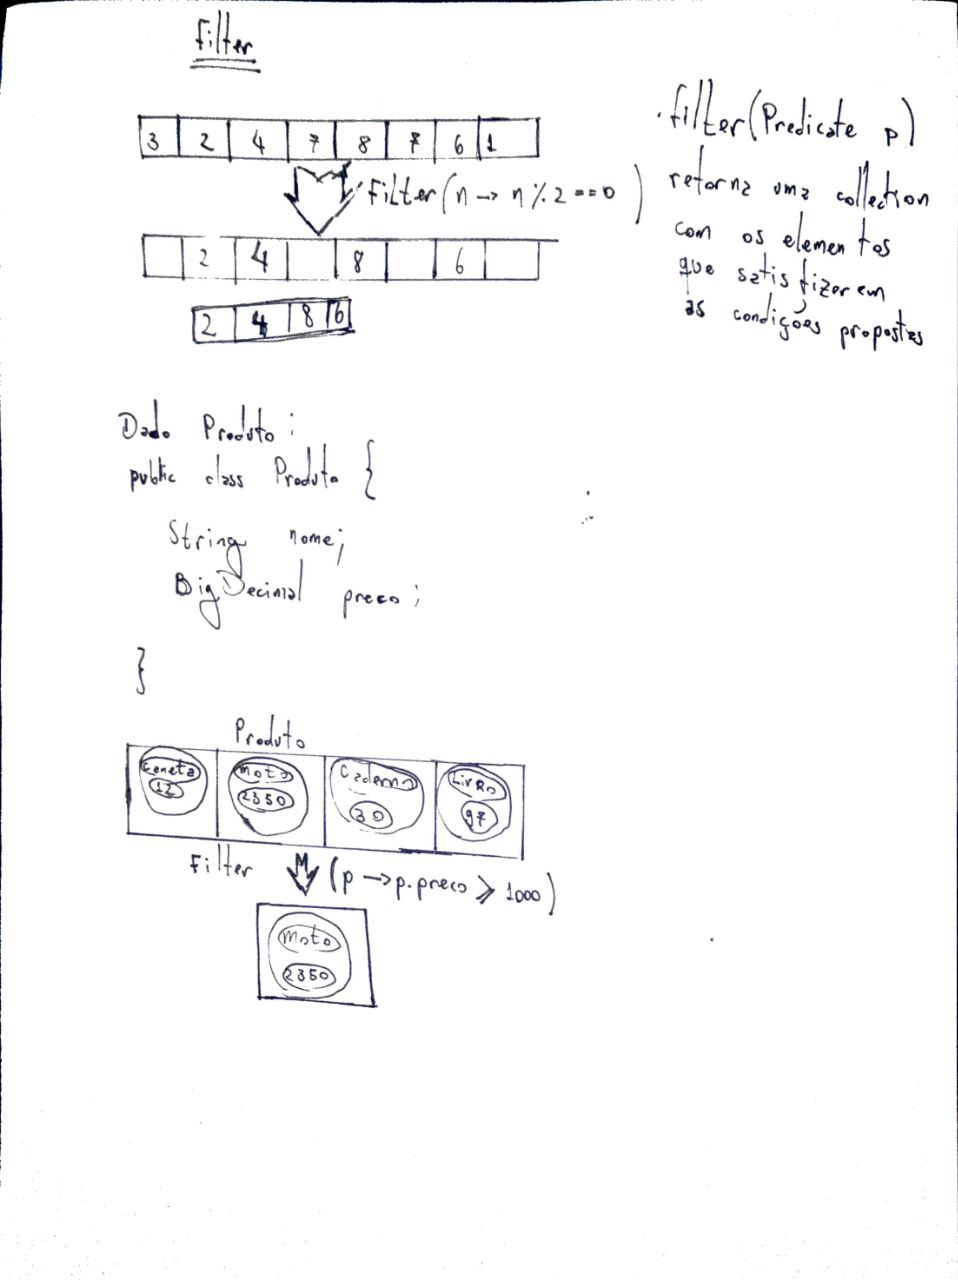 Filter
3 2 4 7 8 7 6 1
Filter (n → n % 2 == 0)
2 4 8 6
2 4 8 6
.filter(Predicate p)
retorna uma collection
com os elementos
que satisfizerem
as condições propostas
Dado Produto:
public class Produto {
String nome;
BigDecimal preco;
}
Produto
Caneta Moto Caderno Livro
12 2350 30 97
Filter (p → p.preco > 1000)
Moto
2350